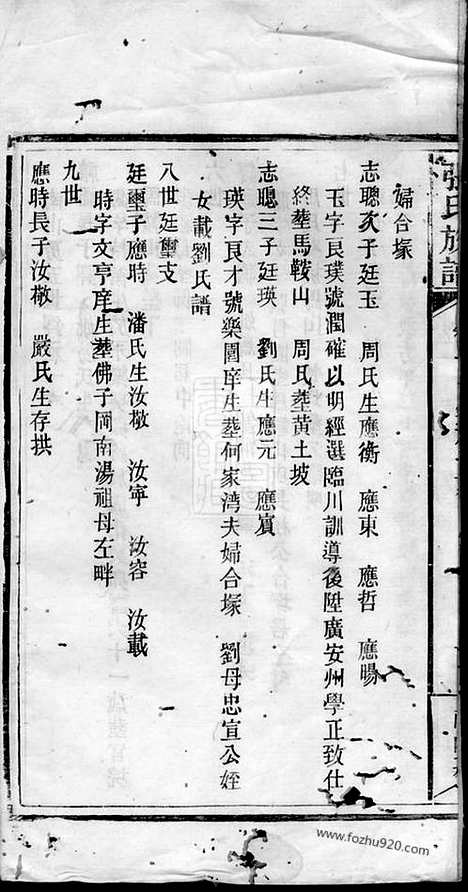 張氏族譜
婦合塚
志聰次子廷玉　周氏生應衡　應東　應哲　應暘
玉字良璞號潤確以明經選臨川訓導後陞廣安州學正致仕
終塟馬鞍山　周氏塟黄土坡
志聰三子廷瑛　劉氏生應元　應賔
瑛字良才號樂園庠生塟何家湾夫婦合塚　劉母忠宣公姪
女載劉氏譜
八世廷璽支
廷璽子應時　潘氏生汝敬　汝寜　汝容　汝載
時字文亨庠生塟佛子岡南湯祖母左畔
九世
應時長子汝敬　嚴氏生存拱
www.fozhu920.com